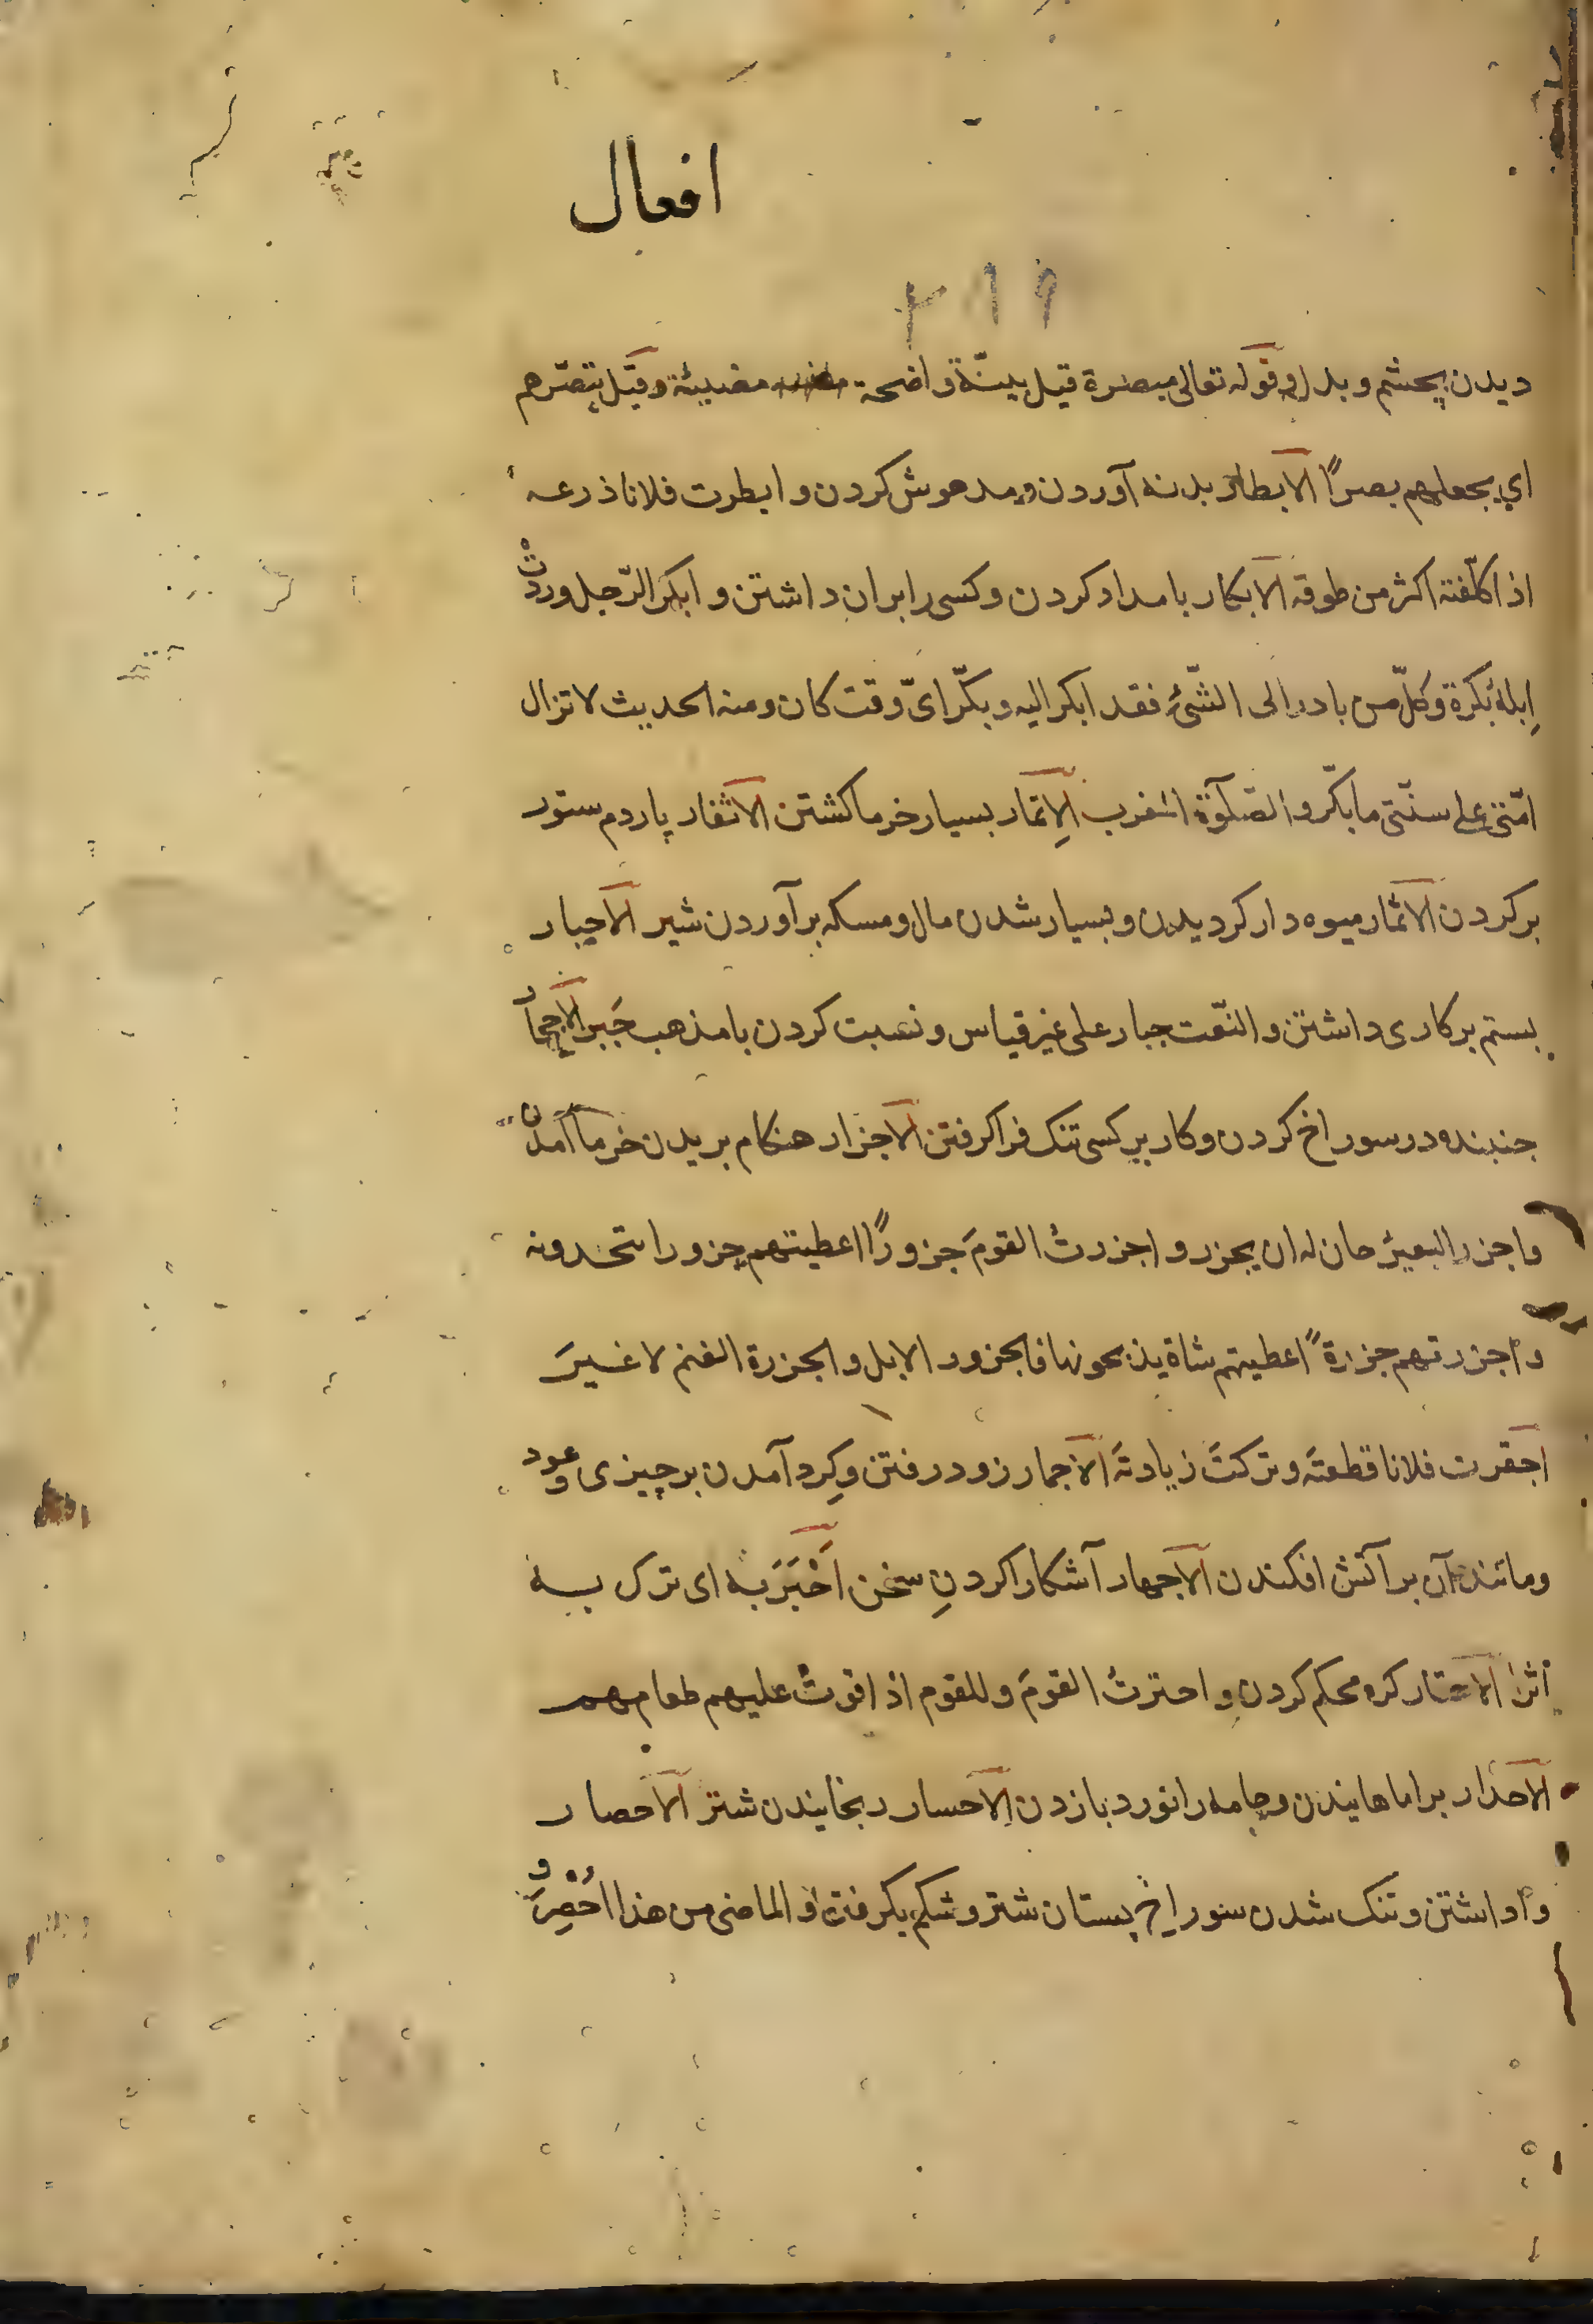 افعال
۲۱۹
ديدن بچشم و بدل و قوله تعالى مبصرة قيل بينّة واضحة مضيئة و قيل تبصّرهم
اي يجعلهم بصراً الابطار بدنه آوردن و مدهوش كردن و ابطرت فلانا ذرعه
اذا كلّفته اكثر من طوقه الابكار بامداد كردن و كسى را بران داشتن و ابكر الرّجل وردتْ
اِبلهُ بُكرة و كلّ من بادر الى الشّئ فقد ابكر اليه و بكّر اىّ وقت كان و منه الحديث لا تزال
امّتى على سنّتى ما بكّروا الصّلٰوة المغرب الاِتمار بسيار خرما كشتن الاثفار پاردم ستور
بر كردن الاثمار ميوه دار كرديدن و بسيار شدن مال و مسكه برآوردن شير الاجبار
بستم بر كارى داشتن و النّعت جبار على غير قياس و نسبت كردن با مذهب جَبر الاجحار
جنبنده در سوراخ كردن و كار بر كسى تنك فرا كرفتن الاجزار هنكام بريدن خرما آمدن
و اجزر البعيرُ حان له ان يجزر و اجزرتُ القومَ جزورًا اعطيتهم جزورا ينحرونه
و اجزرتهم جزرةً اعطيتهم شاة يذبحونها فالجزور الابل و الجزرة الغنم لا غيرَ
اجفرت فلانا قطعتَه و تركتَ زيادتَه الاجمار زود رفتن و كِرد آمدن بر چيزى و عود
و مانند آن بر آتش افكندن الاجهار آشكارا كردنِ سخن اَحْبَرَ به اى ترك به
اثرا الاحتار كره محكم كردن و احترتُ القومَ و للقوم اذا قوتُ عليهم طعامهم
الاحدار براماهانيدن و جامه را نورد باز دن الاحسار رنجانيدن شتر الاحصار
وا داشتن و تنك شدن سوراخ پستان شتر و شكم بكرفتن و الماضى من هذا اُحْصِرَ و